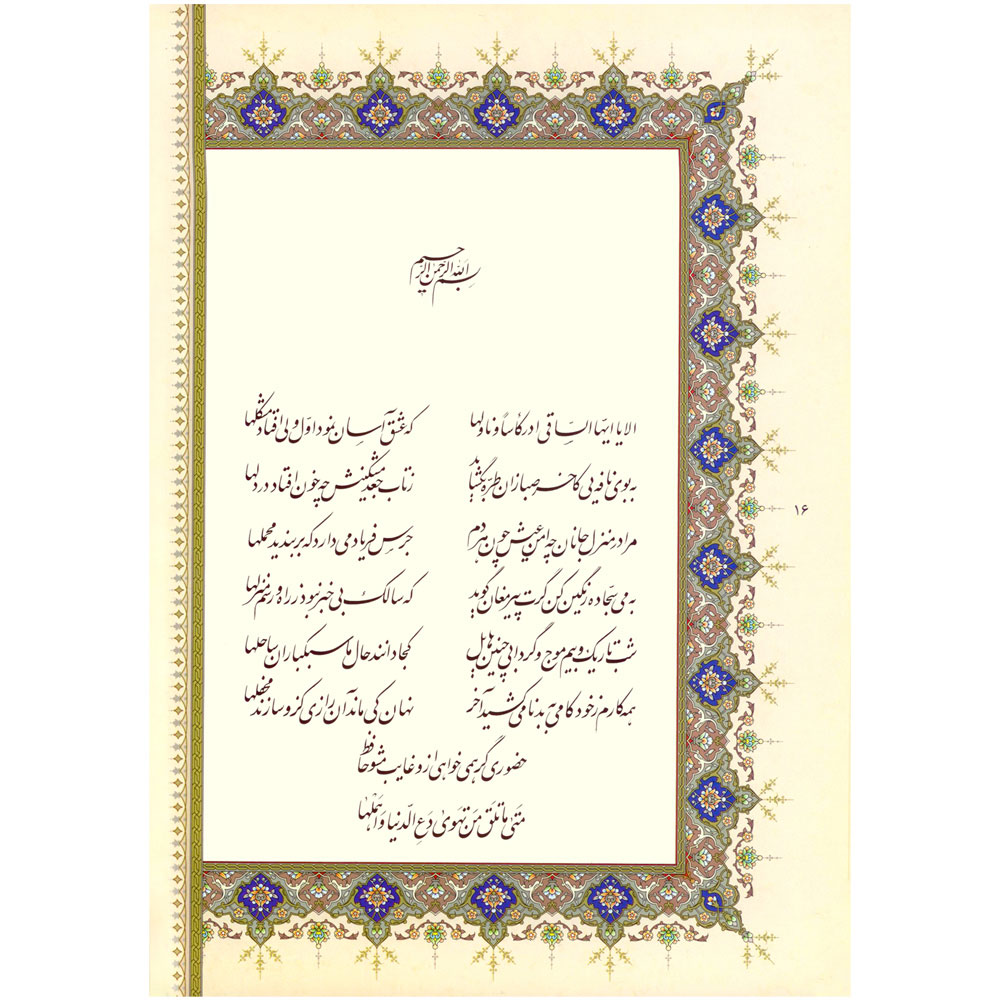 بسم الله الرحمن الرحیم
الا یا ایها الساقی ادر کاساً و ناولها که عشق آسان نمود اول ولی افتاد مشکلها
به بوی نافه یی کاخر صبا زان طره بگشاید ز تاب جعد مشکینش چه خون افتاد در دلها
مرا در منزل جانان چه امن عیش چون هر دم جرس فریاد می دارد که بربندید محملها
به می سجاده رنگین کن گرت پیر مغان گوید که سالک بی خبر نبود ز راه و رسم منزلها
شب تاریک و بیم موج و گردابی چنین هایل کجا دانند حال ما سبکباران ساحلها
همه کارم ز خود کامی به بدنامی کشید آخر نهان کی ماند آن رازی کزو سازند محفلها
حضوری گر همی خواهی ازو غایب مشو حافظ
متی ما تلق من تهوی دع الدنیا و اهملها
۱۶